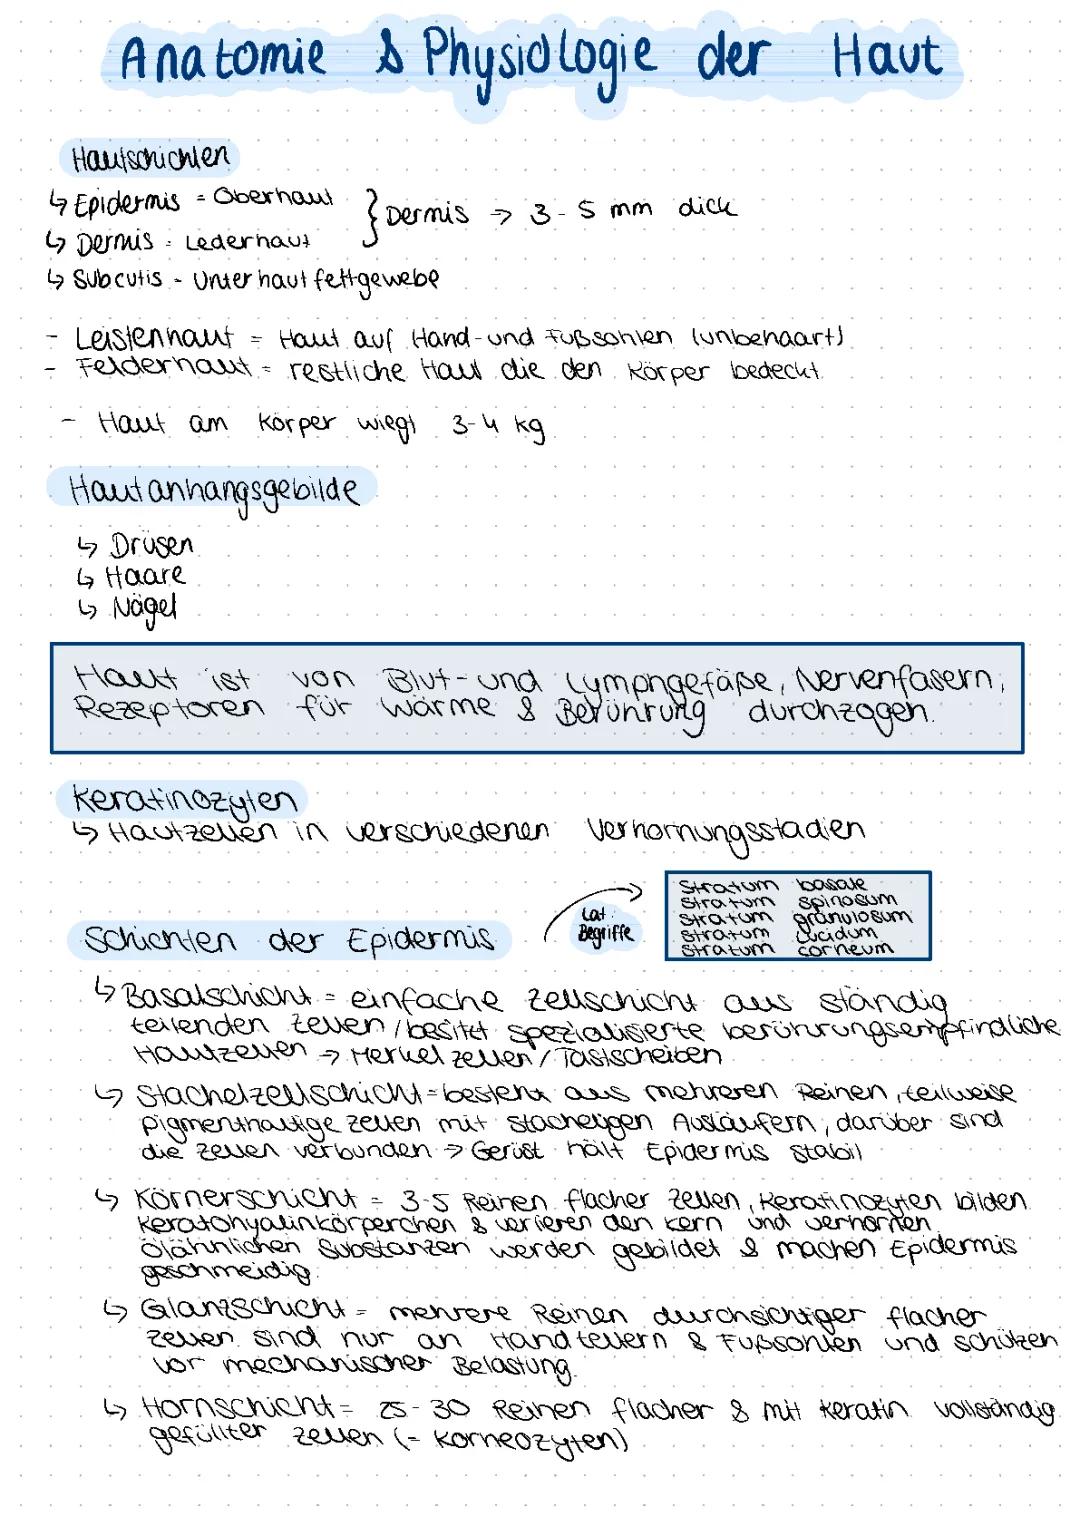 Anatomie & Physiologie der Haut
Hautschichten
↳ Epidermis = Oberhaut
↳ Dermis = Lederhaut
} Dermis → 3-5 mm dick
↳ Subcutis - Unterhautfettgewebe
- Leistenhaut = Haut auf Hand- und Fußsohlen (unbehaart)
- Felderhaut = restliche Haut die den Körper bedeckt
- Haut am Körper wiegt 3-4 kg
Hautanhangsgebilde
↳ Drüsen
↳ Haare
↳ Nägel
Haut ist von Blut- und Lymphgefäße, Nervenfasern,
Rezeptoren für Wärme & Berührung durchzogen.
Keratinozyten
↳ Hautzellen in verschiedenen Verhornungsstadien
Stratum basale
Stratum spinosum
Stratum granulosum
Stratum lucidum
Stratum corneum
Lat.
Begriffe
Schichten der Epidermis
↳ Basalschicht = einfache Zellschicht aus ständig
teilenden Zellen / besitzt spezialisierte berührungsempfindliche
Hautzellen → Merkelzellen / Tastscheiben
↳ Stachelzellschicht = besteht aus mehreren Reihen, teilweise
pigmenthaltige Zellen mit stacheligen Ausläufern, darüber sind
die Zellen verbunden → Gerüst hält Epidermis stabil
↳ Körnerschicht = 3-5 Reihen flacher Zellen, Keratinozyten bilden
Keratohyalinkörperchen & verlieren den Kern und verhornen
ölähnlichen Substanzen werden gebildet & machen Epidermis
geschmeidig.
↳ Glanzschicht = mehrere Reihen durchsichtiger flacher
Zellen. sind nur an Handtellern & Fußsohlen und schützen
vor mechanischer Belastung.
↳ Hornschicht = 25-30 Reihen flacher & mit Keratin vollständig
gefüllter Zellen (= Korneozyten)